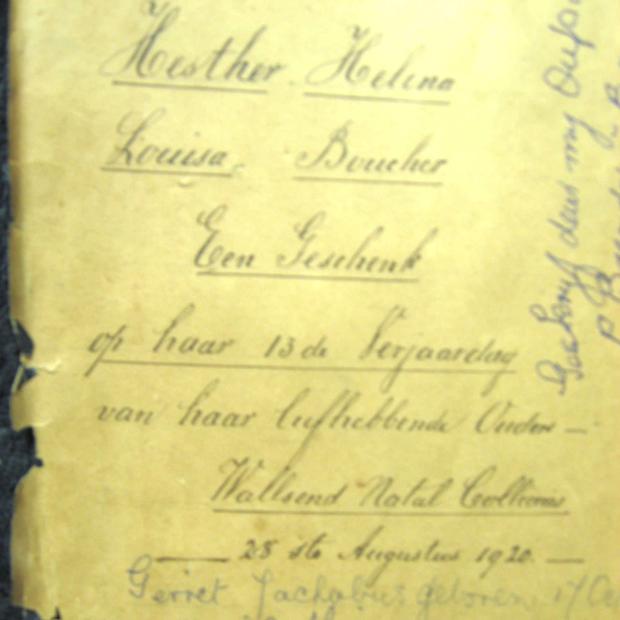 Hesther Helena
Louisa Boucher
Een Geschenk
op haar 13 de Verjaardag
van haar liefhebbende Ouders —
Wallsend Natal Collieries
— 28 ste Augustus 1920. —
Gerret Jachabus geboren 17
deur my Oupa
P